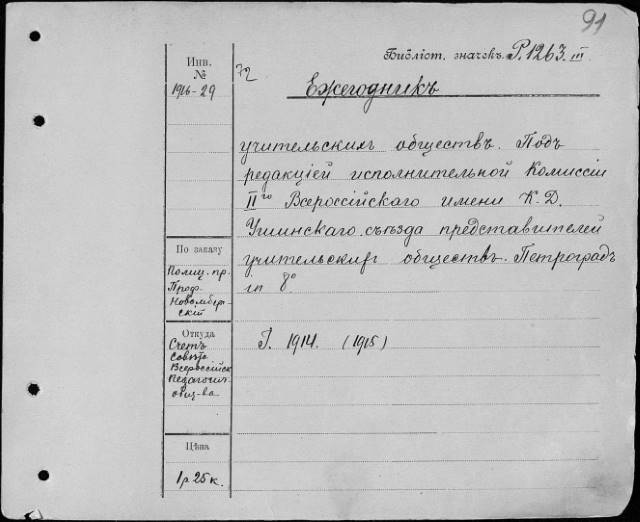 91
Библіот. значекъ P.1263.III
Инв.
№
1916-29
72
Ежегодникъ
учительскихъ обществъ. Подъ
редакціей исполнительной Комиссіи
II го Всероссійскаго имени К.Д.
Ушинскаго съѣзда представителей
учительских обществъ. Петроградъ
in 8°
По заказу
Полиц. пр.
Проф.
Новомберг-
скій
Откуда
Счетъ
Совѣта
Всероссійск
Педагогич.
общ-ва
I. 1914. (1915)
Цѣна
1 р 25 к.